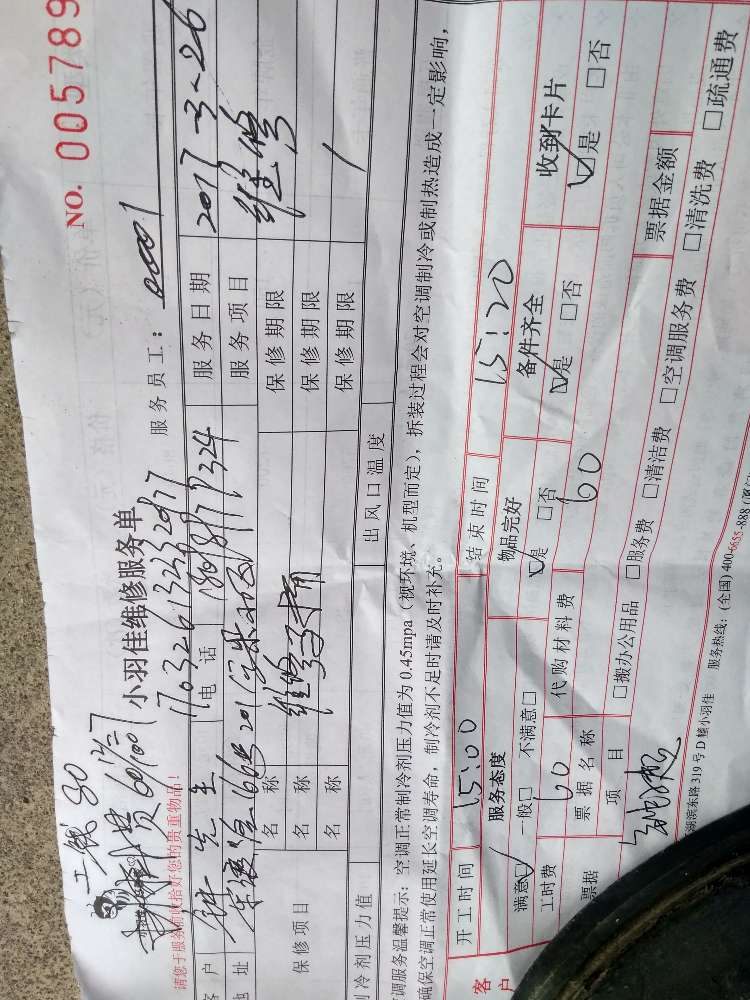 NO. 005789
工钱80
小羽佳维修服务单
服务员工：00001
请您于服务前收拾好您的贵重物品!
客户
先生
电话
服务日期 2017-3-26
地址
服务项目 维修
保修项目
名称
维修
保修期限
名称
保修期限
名称
保修期限
制冷剂压力值
出风口温度
空调服务温馨提示：空调正常制冷剂压力值为0.45mpa（视环境、机型而定），拆装过程会对空调制冷或制热造成一定影响，
确保空调正常使用延长空调寿命，制冷剂不足时请及时补充。
客户
开工时间 15:00 结束时间 15:20
服务态度 物品完好 备件齐全 收到卡片
满意☑ 一般□ 不满意□ ☑是 □否 ☑是 □否 ☑是 □否
工时费 60 代购材料费 60 票据金额
票据
票据名称
项目
□搬办公用品 □服务费 □清洁费 □空调服务费 □清洗费 □疏通费
湖滨东路319号D栋小羽佳 服务热线：(全国)400-6655-888